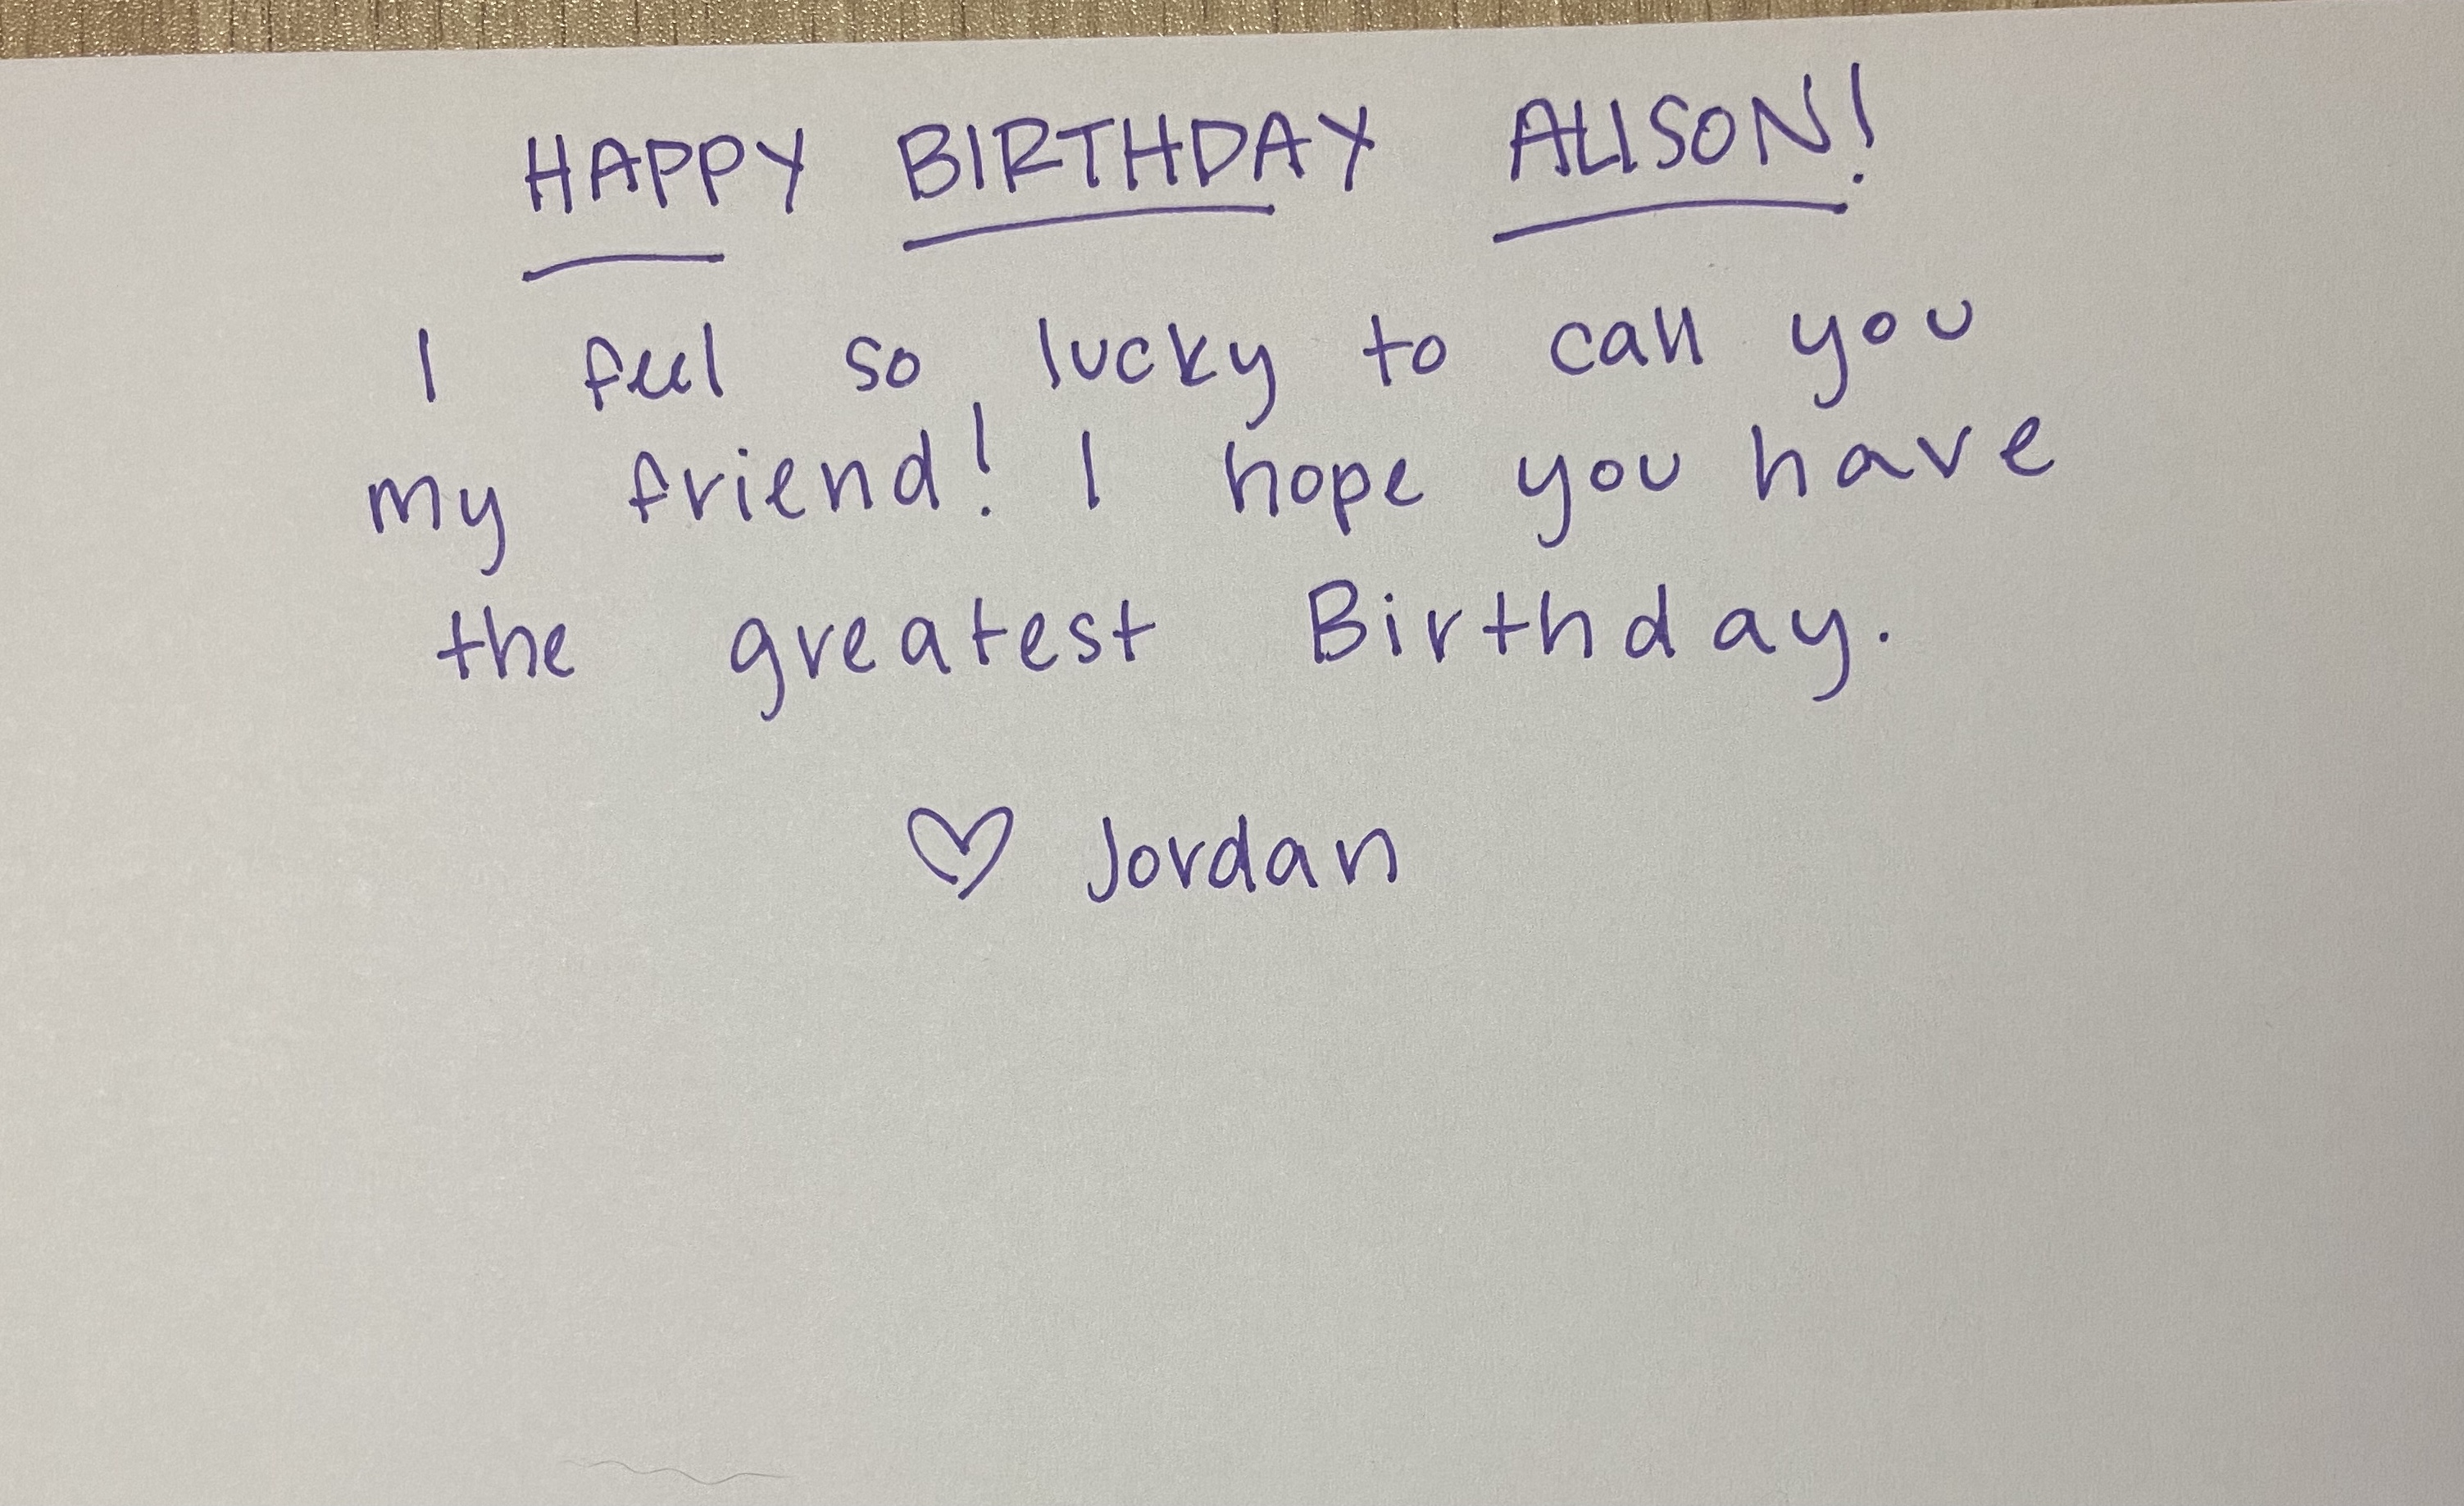 HAPPY BIRTHDAY ALISON!
I feel so lucky to call you
my friend! I hope you have
the greatest Birthday.
♡ Jordan